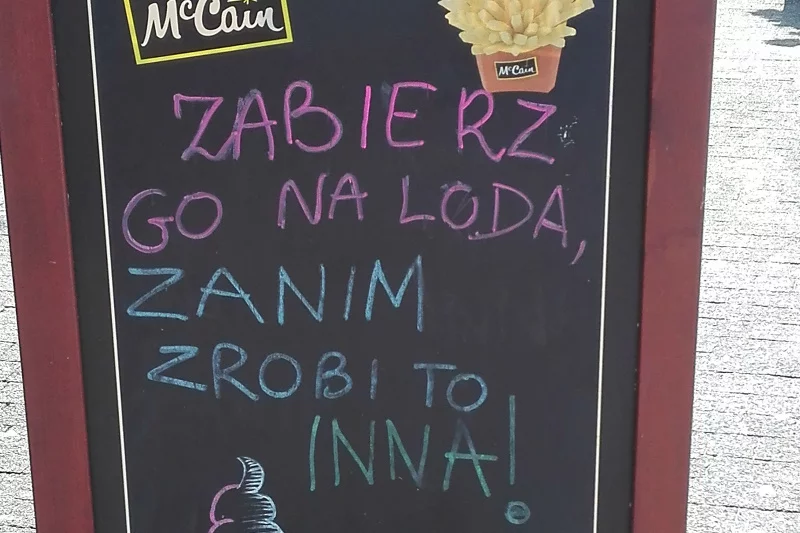 McCain
McCain
ZABIERZ
GO NA LODA,
ZANIM
ZROBI TO
INNA!